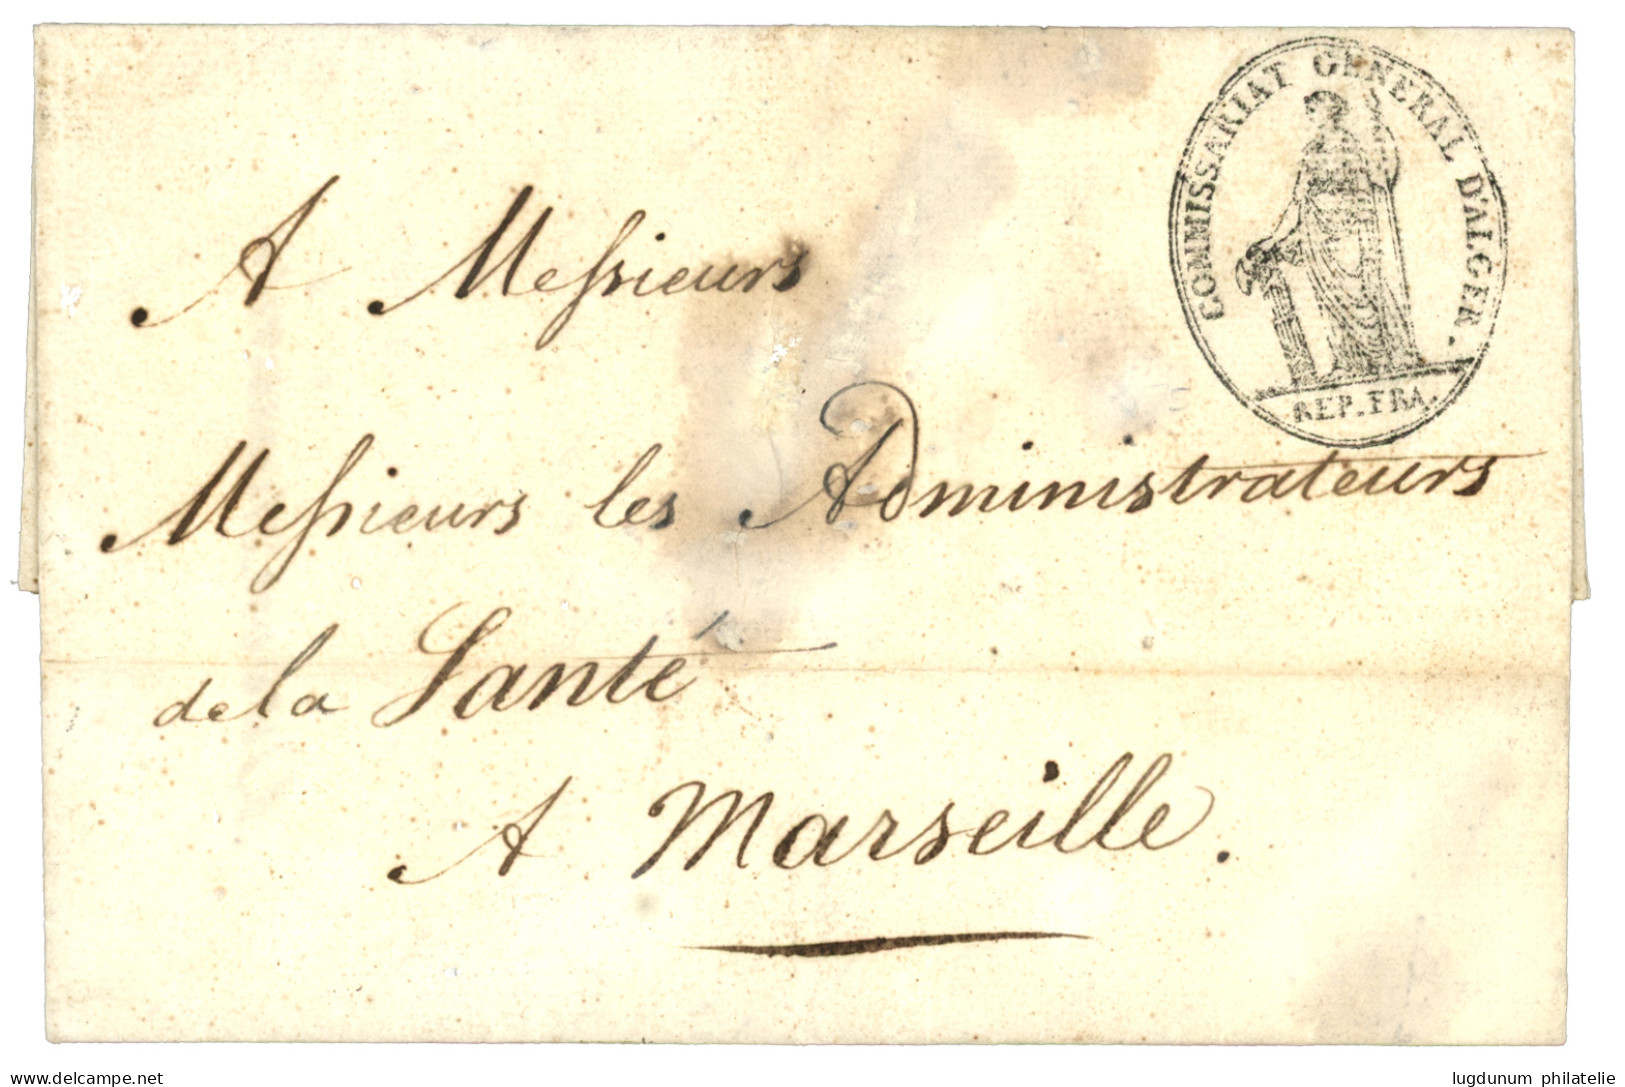 COMMISSARIAT GENERAL D'ALGER.
REP. FRA.
A Messieurs
Messieurs les Administrateurs
de la Santé
A Marseille.
www.delcampe.net
lugdunum philatelie